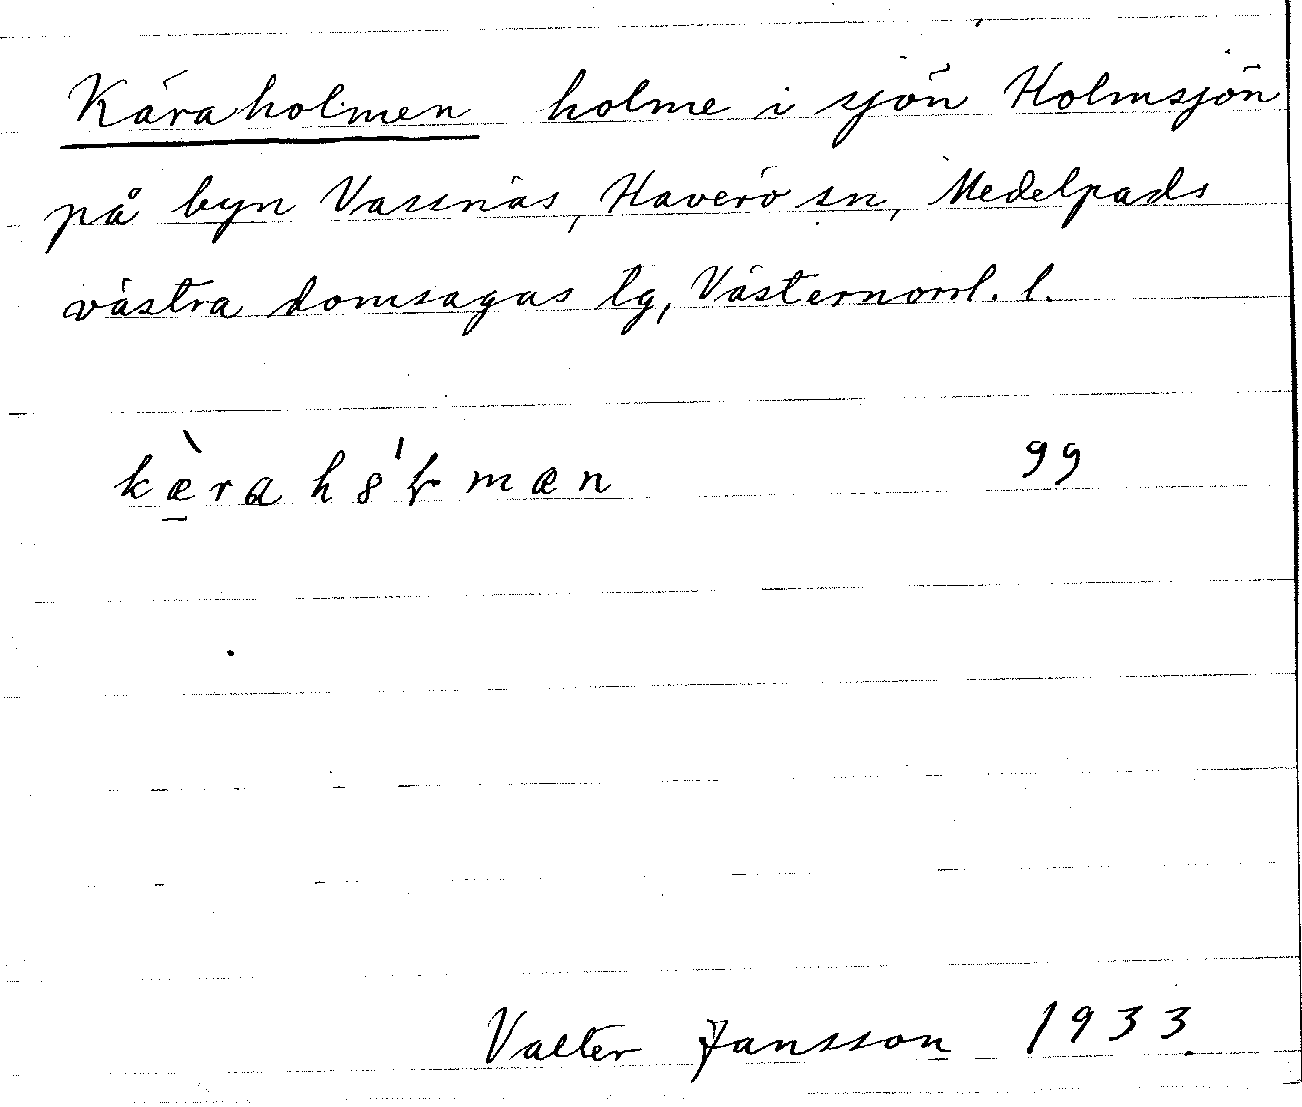 Käraholmen holme i sjön Holmsjön
på byn Vassnäs, Haverö sn, Medelpads
västra domsagas lg, Västernorrl. l.
99
Valter Jansson 1933.